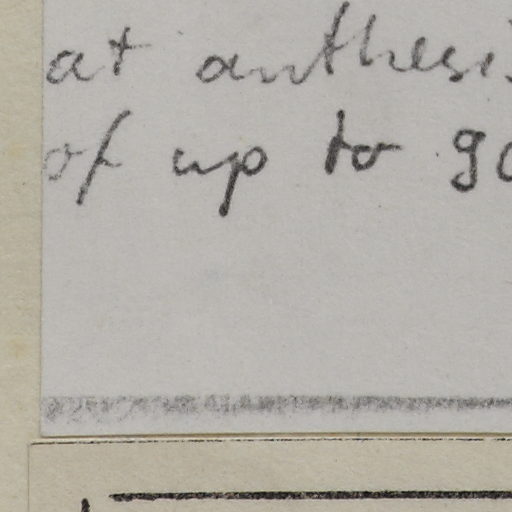 at anthesis
of up to 90